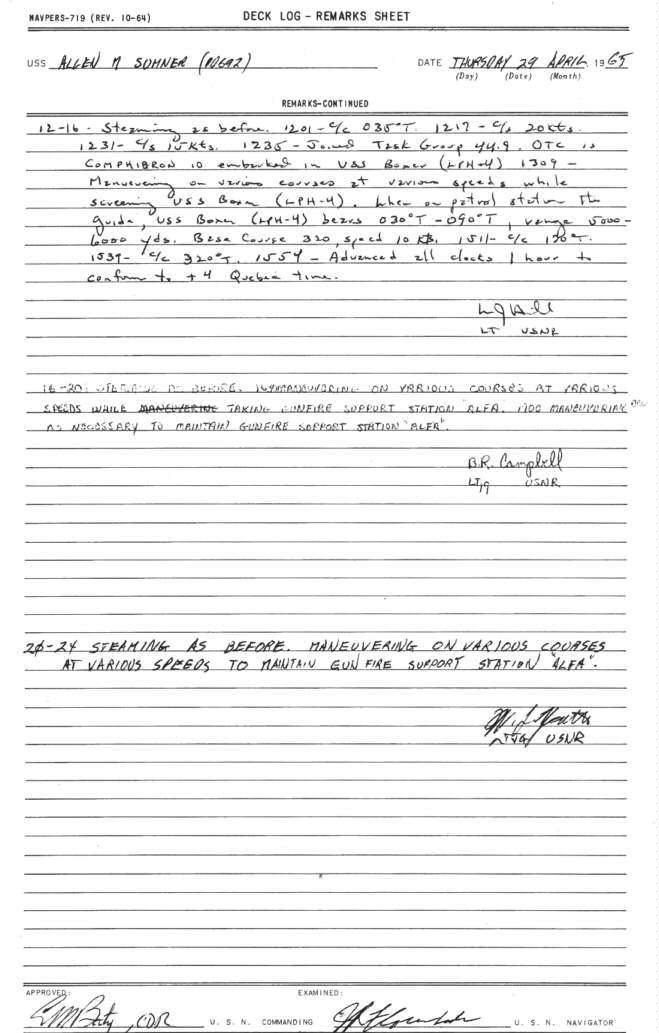 NAVPERS-719 (REV. 10-64) DECK LOG - REMARKS SHEET
USS ALLEN M SUMNER (DD692) DATE THURSDAY 29 APRIL 1965
(Day) (Date) (Month)
REMARKS-CONTINUED
12-16 - Steaming as before. 1201 - C/c 035°T. 1217 - C/s 20kts.
1231 - C/s 15kts. 1235 - Joined Task Group 44.9. OTC is
COMPHIBRON 10 embarked in USS Boxer (LPH-4) 1309 -
Manuevering on various courses at various speeds while
screening USS Boxer (LPH-4). When on patrol station the
guide, USS Boxer (LPH-4) bears 030°T - 090°T, range 5000-
6000 yds. Base Course 320, speed 10 kts. 1511 - C/c
1539 - C/c 320°T. 1554 - Advanced all clocks 1 hour to
conform to +4 Quebec time.
LT USNR
16-20 AS BEFORE. MANEUVERING ON VARIOUS COURSES AT VARIOUS
SPEEDS WHILE MANEUVERING TAKING GUNFIRE SUPPORT STATION ALFA. 1700 MANEUVERING
AS NECESSARY TO MAINTAIN GUNFIRE SUPPORT STATION "ALFA".
B.R. Campbell
LTJG USNR
20-24 STEAMING AS BEFORE. MANEUVERING ON VARIOUS COURSES
AT VARIOUS SPEEDS TO MAINTAIN GUN FIRE SUPPORT STATION "ALFA".
LTJG USNR
APPROVED: EXAMINED:
CDR U. S. N. COMMANDING U. S. N. NAVIGATOR